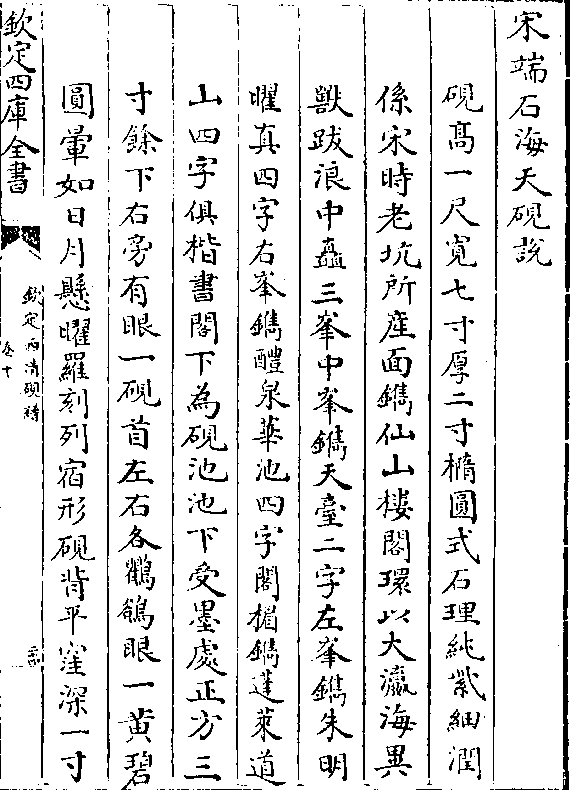 宋端石海天硯說
硯髙一尺寛七寸厚二寸橢圓式石理純紫細潤
係宋時老坑所産面鐫仙山樓閣環以大瀛海異
獸跋浪中矗三峯中峯鐫天臺二字左峯鐫朱明
曜真四字右峯鐫醴泉華池四字閣楣鐫蓬萊道
山四字俱楷書閣下為硯池池下受墨處正方三
寸餘下右旁有眼一硯首左右各鸜鵒眼一黄碧
圓暈如日月懸曜羅刻列宿形硯背平窪深一寸
欽定四庫全書
欽定西清硯譜
卷十